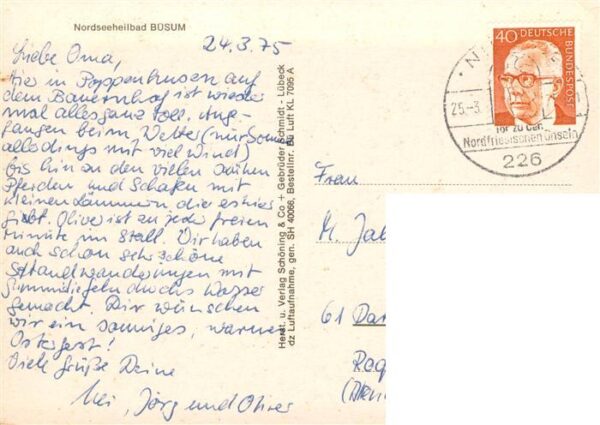 Nordseeheilbad BÜSUM
24.3.75
Liebe Oma,
hier in Poppenhusen auf
dem Bauernhof ist wieder
mal alles ganz toll. Ange-
fangen beim Wetter (nur Sonne
allerdings mit viel Wind)
bis hin zu den vielen
Pferden und Schafen mit
kleinen Lämmern, die es hier
gibt. Oliver ist an jeder freien
Minute im Stall. Wir haben
auch schon sehr schöne
Strandwanderungen mit
Gummistiefeln durchs Wasser
gemacht. Dir wünschen
wir ein sonniges, warmes
Osterfest!
Viele Grüße Deine
Jörg und Oliver
Herst. u. Verlag Schöning & Co + Gebrüder Schmidt - Lübeck
dz Luftaufnahme, gen. SH 40066, Bestellnr. Bü Luft KL 7095 A
40 DEUTSCHE BUNDESPOST
25.-3.
Tor zu den
Nordfriesischen Inseln
226
Frau
M. Jak
61 Dar